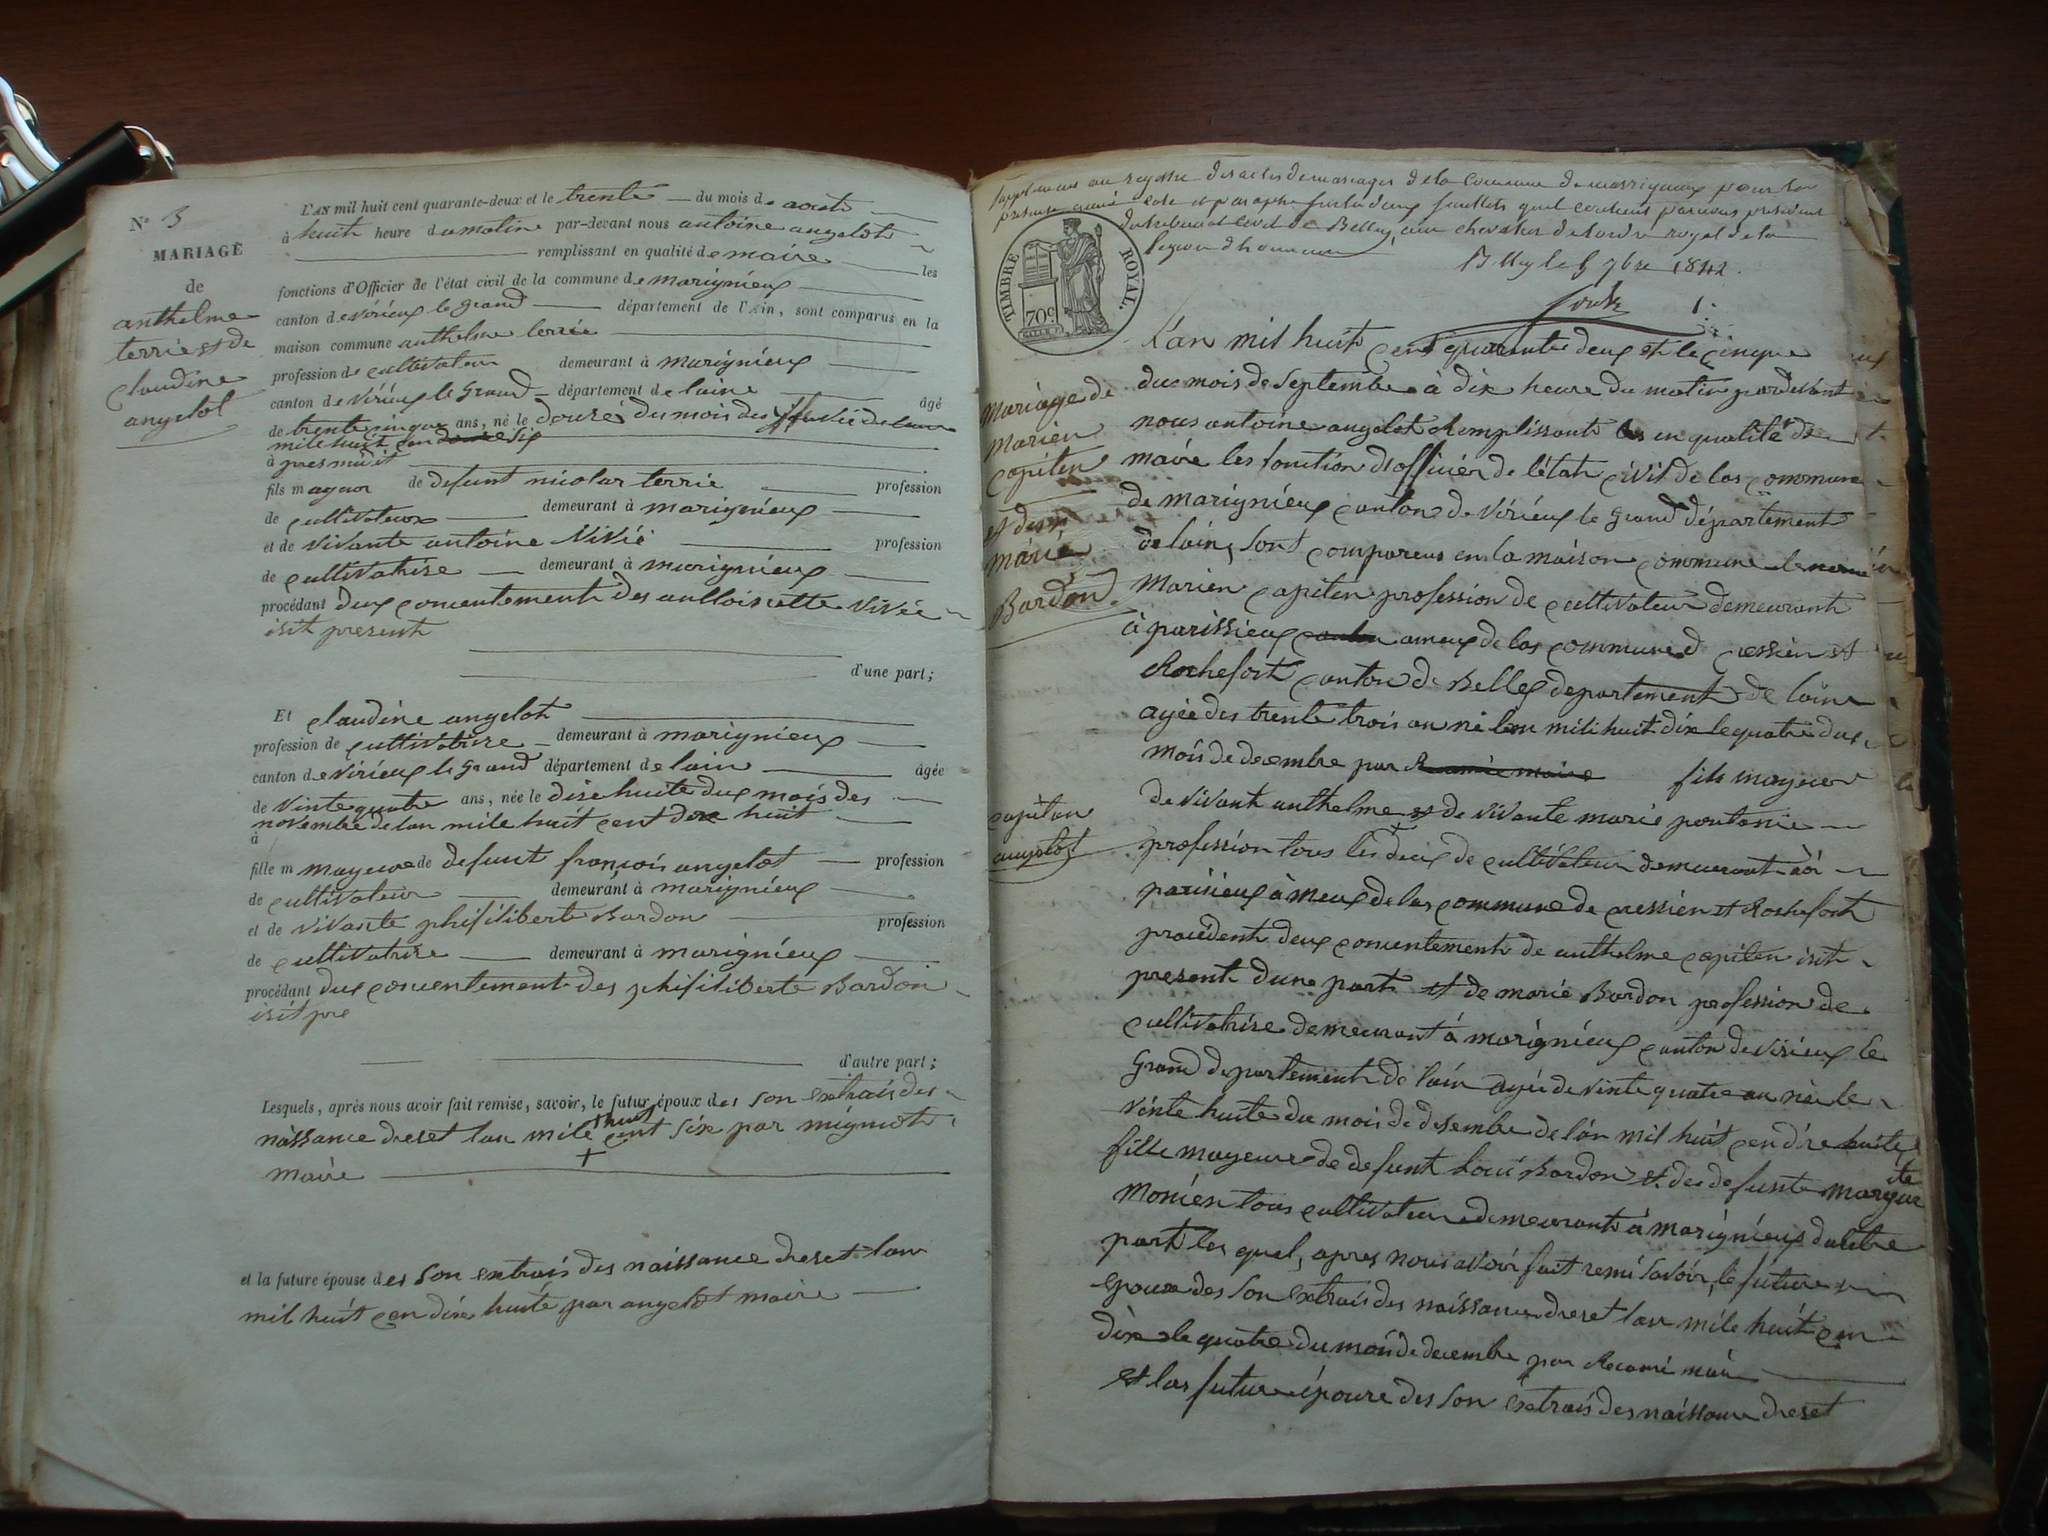 N° 3
MARIAGE
de
anthelme
terrie et de
claudine
angelot
L'AN mil huit cent quarante-deux et le trente du mois de aoust
à huit heure du matin par-devant nous antoine angelot
remplissant en qualité de maire les
fonctions d'Officier de l'état civil de la commune de marignieux
canton de virieux le grand département de l'Ain, sont comparus en la
maison commune anthelme terrie
profession de cultivateur demeurant à marignieux
canton de virieux le Grand département de laine âgé
de trente cinque ans, né le douze du mois des
mile huit cen six
à pres midit
fils mayeur de defunt nicolas terrie profession
de cultivateur demeurant à marignieux
et de vivante antoine vivié profession
de cultivatrise demeurant à marignieux
procédant dux concentement des vivié
isit present
d'une part;
Et claudine angelot
profession de cultivatrise demeurant à marignieux
canton de virieux le Grand département de lain âgée
de vinte quatre ans, née le dixe huite dux mois des
novembre de lan mile huit cent dixe huit
à
fille m mayeure de defunt françois angelot profession
de cultivateur demeurant à marignieux
et de vivante phifiliberte Bardon profession
de cultivatrise demeurant à marignieux
procédant dux concentement des phifiliberte Bardon
isit pre
d'autre part;
Lesquels, après nous avoir fait remise, savoir, le futur époux des son extrais des
naissance dreset lan mile huit cent six par mignot
maire
et la future épouse des son extrais des naissance dreset lan
mil huit cen dixe huite par angelot maire
Supplement au registre des actes de mariages de la commune de marignieux pour la
presente année coté et paraphé sur les deux feuillets quil contient par nous president
du tribunal civil de Belley, chevalier de lordre royal de la
legion dhonneur
Belley le 5 7bre 1842.
1.
TIMBRE ROYAL.
70c
Mariage de
marien
capiten
et de
marie
Bardon
capitan
angelot
Lan mil huit cent quarante deux et le cinque
du mois de septembre à dix heure du matin pardevant
nous antoine angelot Remplissant en qualité de
maire les fonction dofficier de létat civil de las commune
de marignieux canton de virieux le Grand département
de lain, sont comparus en la maison commune le nomé
Marien capiten profession de cultivateur demeurant
à parissieux ameux de las commune d cressien et
Rochefort canton de Belley departement de lain
agée des trente trois an né lan mili huit dix le quatre dux
mois de decembre par fils mayeur
de vivant anthelme et de vivante marie pontanie
profession tous les deux de cultivateur demeurant à
parisieux ameux de las commune de cressien et Rochefort
procedent dux concentement de anthelme capiten isit
present dune part et de marie Bardon profession de
cultivatrise demeurant á marignieux canton de virieux le
Grand departement de lain agée de vinte quatre an née le
vinte huite du mois de desembre de lan mil huit cen dixe huite
fille mayeure de defunt Loui Bardon et de defunte margueite
Monien tous cultivateur demeurant à marignieux dautre
part les quel, apres nous avoir fait remi savoir, le future
epoux des son extrais des naissance dreset lan mile huit cen
dix le quatre du mois de decembre par Recami mair
et las future épouse des son extrais des naissance dreset